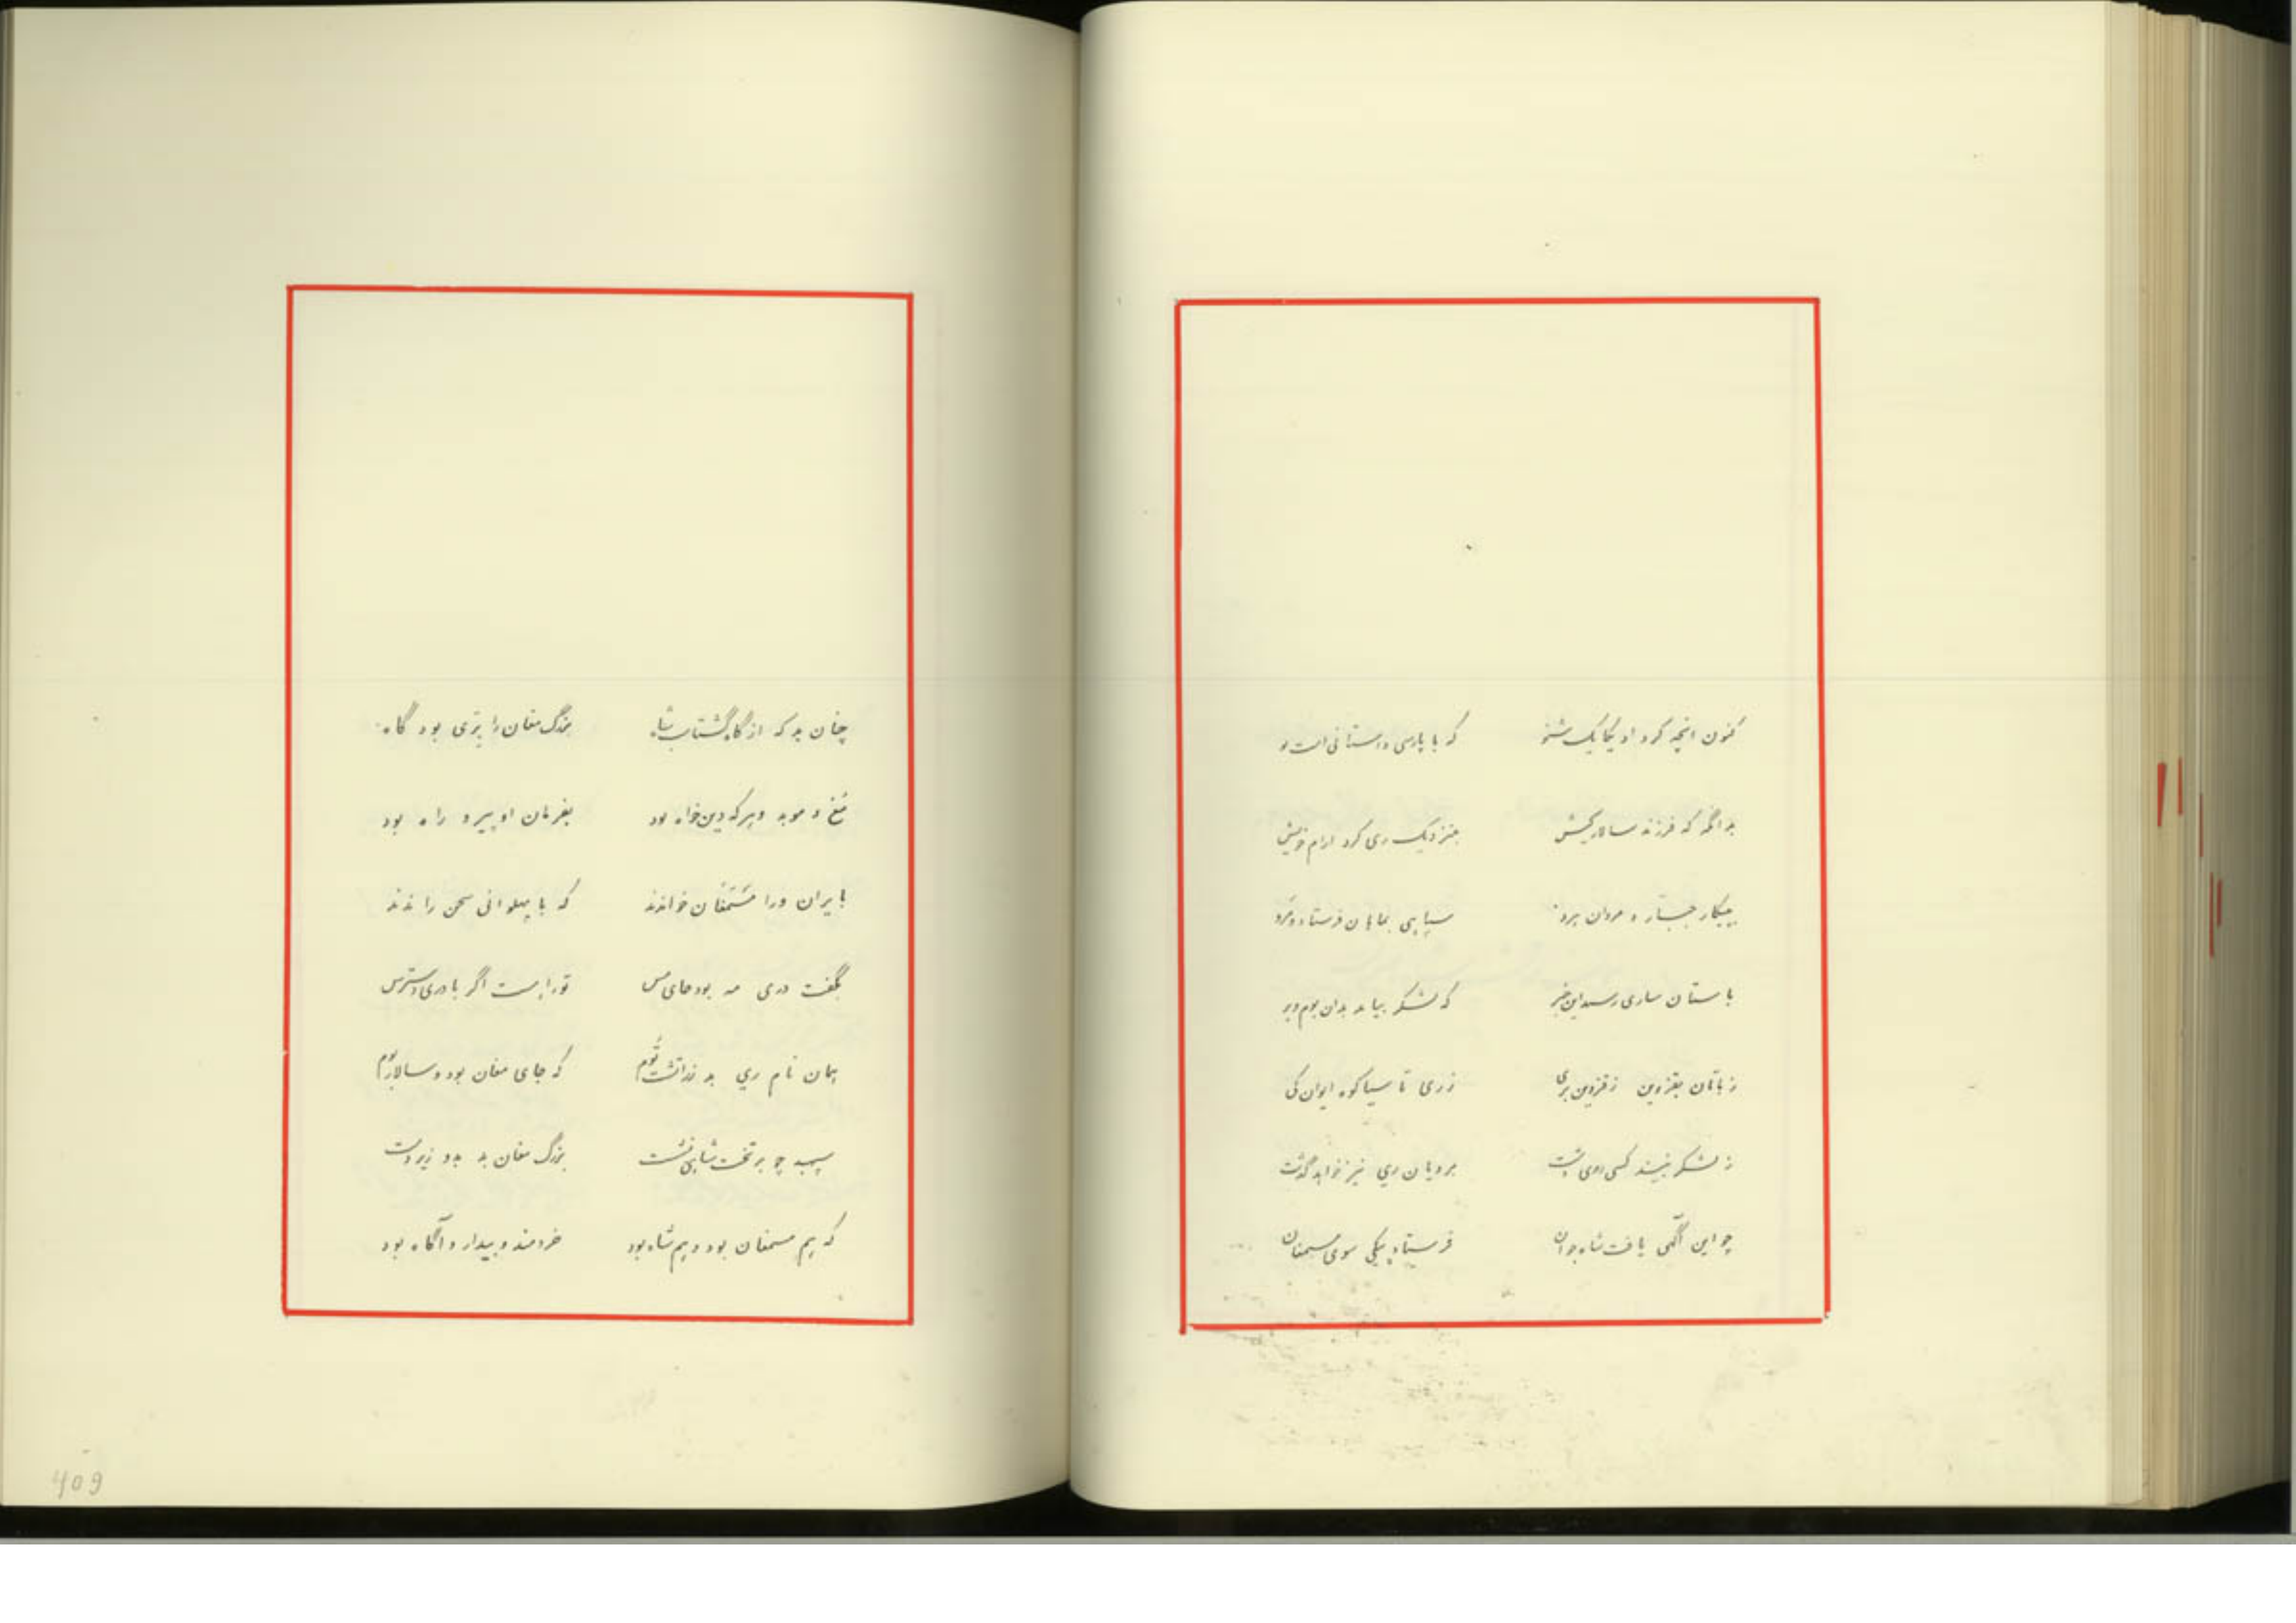 کنون انچه کرد او یکایک شنو که با پارسی داستانی است نو
بدانگه که فرزند سالار کیش بنزدیک ری کرد ارام خویش
بپیکار جستار و مردان برد سپاهی بماهان فرستاد و کرد
باستان ساری رسید این خبر که لشکر بیامد بدان بوم و بر
ز باتان بقزوین ز قزوین بری ز ری تا سیاکوه ایوان کی
ز لشکر نبیند کسی روی دشت بر ویان ری نیز خواهد گذشت
چو این آگهی یافت شاه جوان فرستاد پیکی سوی مسمغان
چنان بد که از گاه گشتاسب شاه بزرگ مغان را بری بود گاه
مُغ و موبد و هر که دین خواه بود بفرمان او پیرو راه بود
بایران ورا مَسْمَغان خواندند که با پهلوانی سخن راندند
بگفت دری مه بود جای مس تو راست اگر با دری دسترس
همان نام ری بد زراتشت توم که جای مغان بود و سالار بوم
سپهبد چو بر تخت شاهی نشست بزرگ مغان بد بدو زیردست
که هم مسمغان بود و هم شاه بود خردمند و بیدار و آگاه بود
409